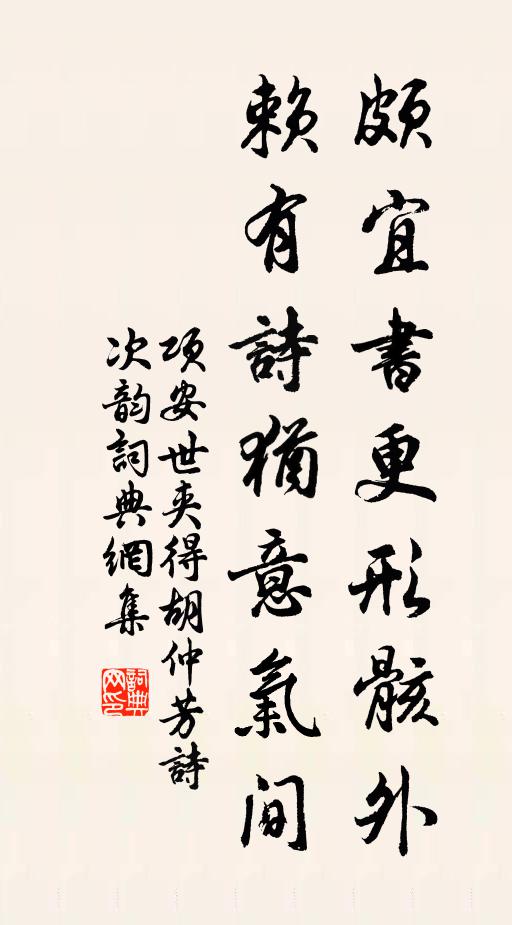 頗宜書更形骸外
賴有詩猶意氣间
项安世夾得胡仲芳詩
次韵詞典網集
詞典网印